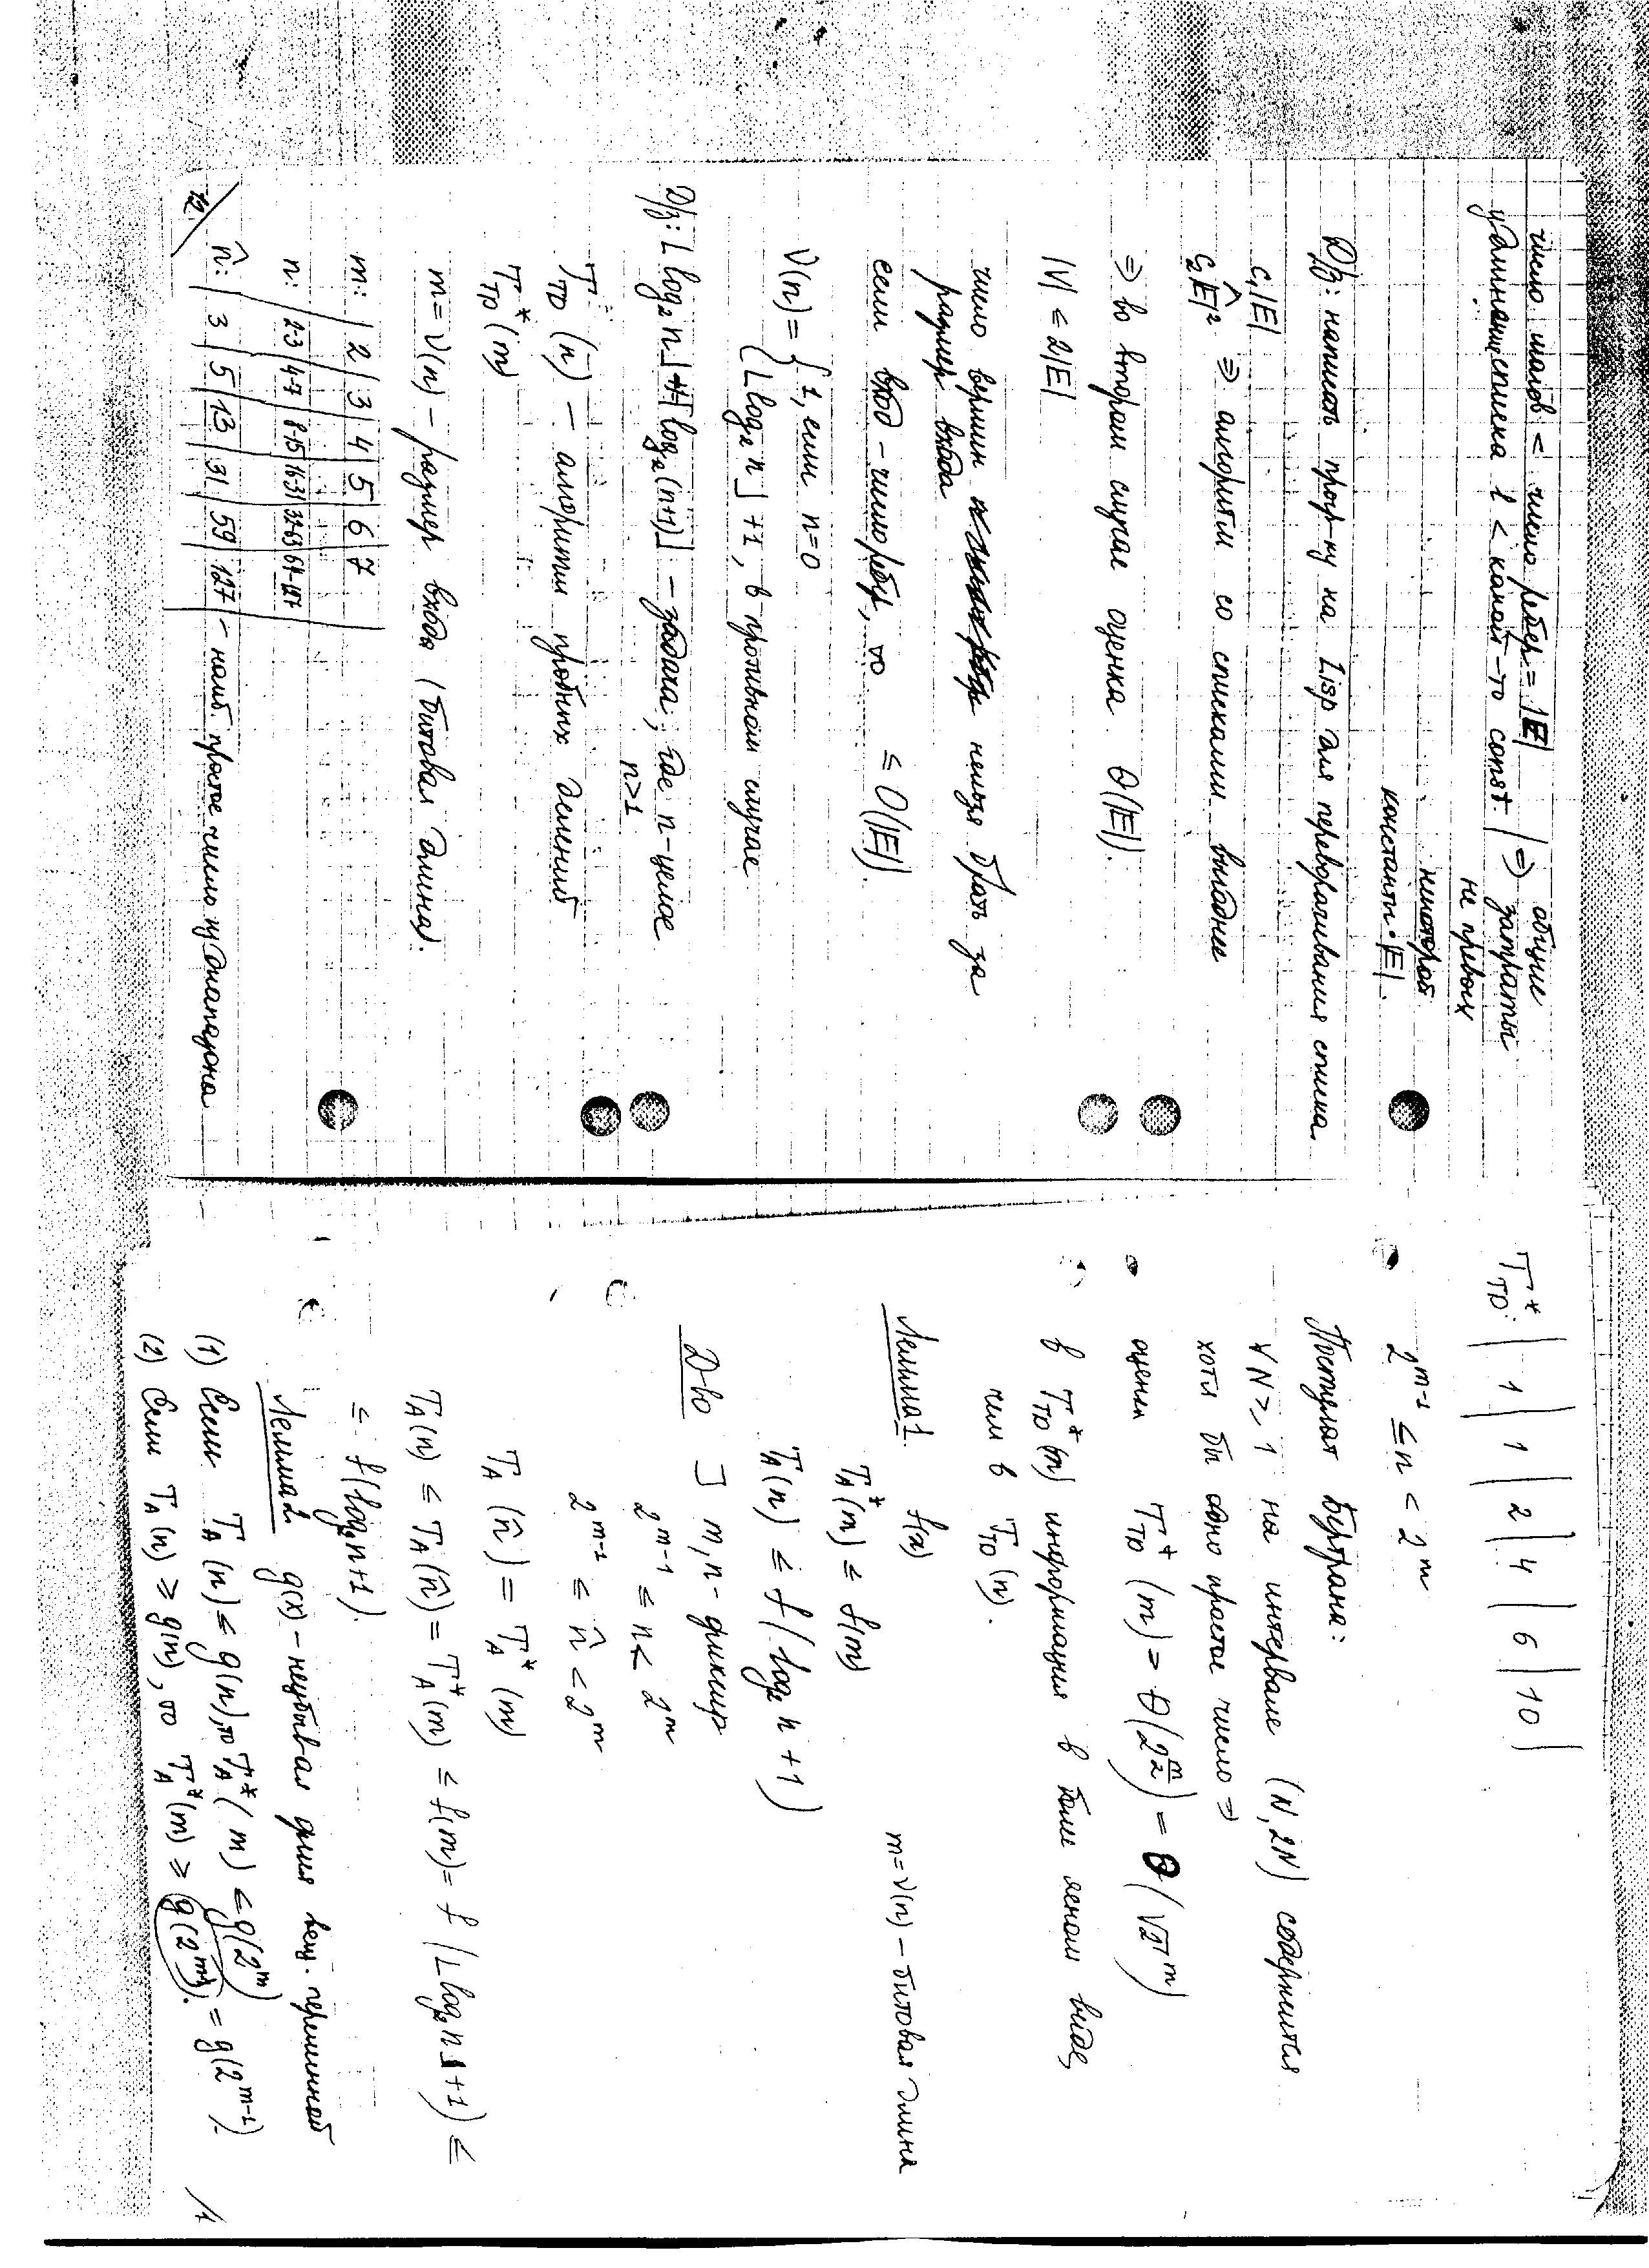 число шагов < число рёбер = |E|
удлинающ. списка 1 < какой-то const | ⇒ общие затраты не превых некоторой константы · |E|.
D/з: написать прогр-му на Lisp для переворачивания списка.
c₁|E|
c₂|E|² ⇒ алгоритм со списками выгоднее
⇒ во втором случае оценка θ(|E|).
|V| ≤ 2|E|
число вершин нельзя брать за
размер входа
если вход - число рёбер, то ≤ O(|E|).
ν(n) = { 1, если n=0
⌊log₂ n⌋ + 1, в противном случае
D/з: ⌊log₂ n⌋ + ⌈log₂(n+1)⌉ - задача, где n-целое
n>1
T_TD (n) - алгоритм пробных делений
T*_TD (m)
m = ν(n) - размер входа (битовая длина).
m: | 2 | 3 | 4 | 5 | 6 | 7
n: | 2-3 | 4-7 | 8-15 | 16-31 | 32-63 | 64-127
n̂: | 3 | 5 | 13 | 31 | 59 | 127 - наиб. простое число из диапазона
12
T*_TD: | 1 | 1 | 2 | 4 | 6 | 10 |
2^{m-1} ≤ n < 2^m
Постулат Бертрана:
∀N > 1 на интервале (N, 2N) содержится
хотя бы одно простое число ⇒
оценка T*_TD (m) = θ(2^{m/2}) = θ(√2^m)
в T*_TD (m) информация в более ясном виде,
чем в T_TD (n).
Лемма 1. f(x) m = ν(n) - битовая длина
T*_A (m) ≤ f(m)
T_A (n) ≤ f(log₂ n + 1)
Д-во ] m, n - фиксир
2^{m-1} ≤ n < 2^m
2^{m-1} ≤ n̂ < 2^m
T_A (n̂) = T*_A (m)
T_A (n) ≤ T_A (n̂) = T*_A (m) ≤ f(m) = f(⌊log₂ n⌋ + 1) ≤
≤ f(log₂ n + 1).
Лемма 2. g(x) - неубывая ф-ция вещ. переменной
(1) Если T_A (n) ≤ g(n), то T*_A (m) ≤ g(2^m)
(2) Если T_A (n) ≥ g(n), то T*_A (m) ≥ g(2^{m-1}). = g(2^{m-1}).